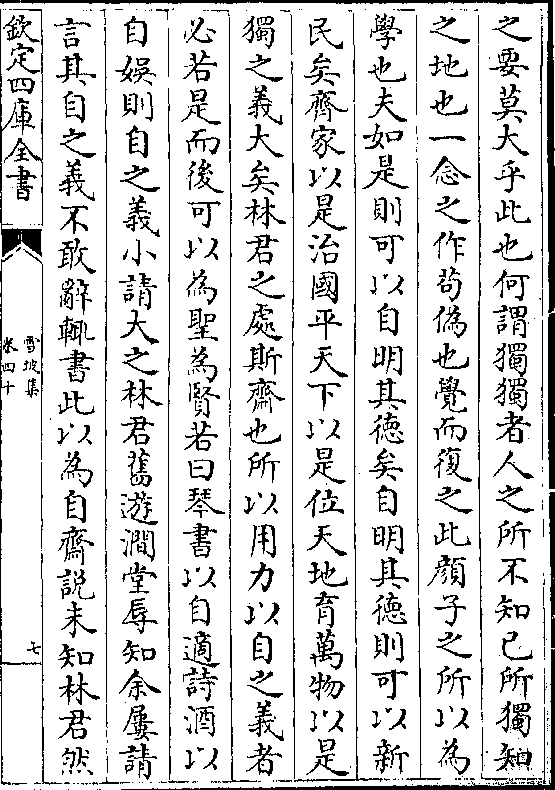 之要莫大乎此也何謂獨獨者人之所不知已所獨知
之地也一念之作苟偽也覺而復之此顔子之所以為
學也夫如是則可以自明其徳矣自明其徳則可以新
民矣齊家以是治國平天下以是位天地育萬物以是
獨之義大矣林君之處斯齋也所以用力以自之義者
必若是而後可以為聖為賢若曰琴書以自適詩酒以
自娯則自之義小請大之林君舊遊澗堂辱知余屢請
言其自之義不敢辭輒書此以為自齋説未知林君然
欽定四庫全書
雪坡集
卷四十
七